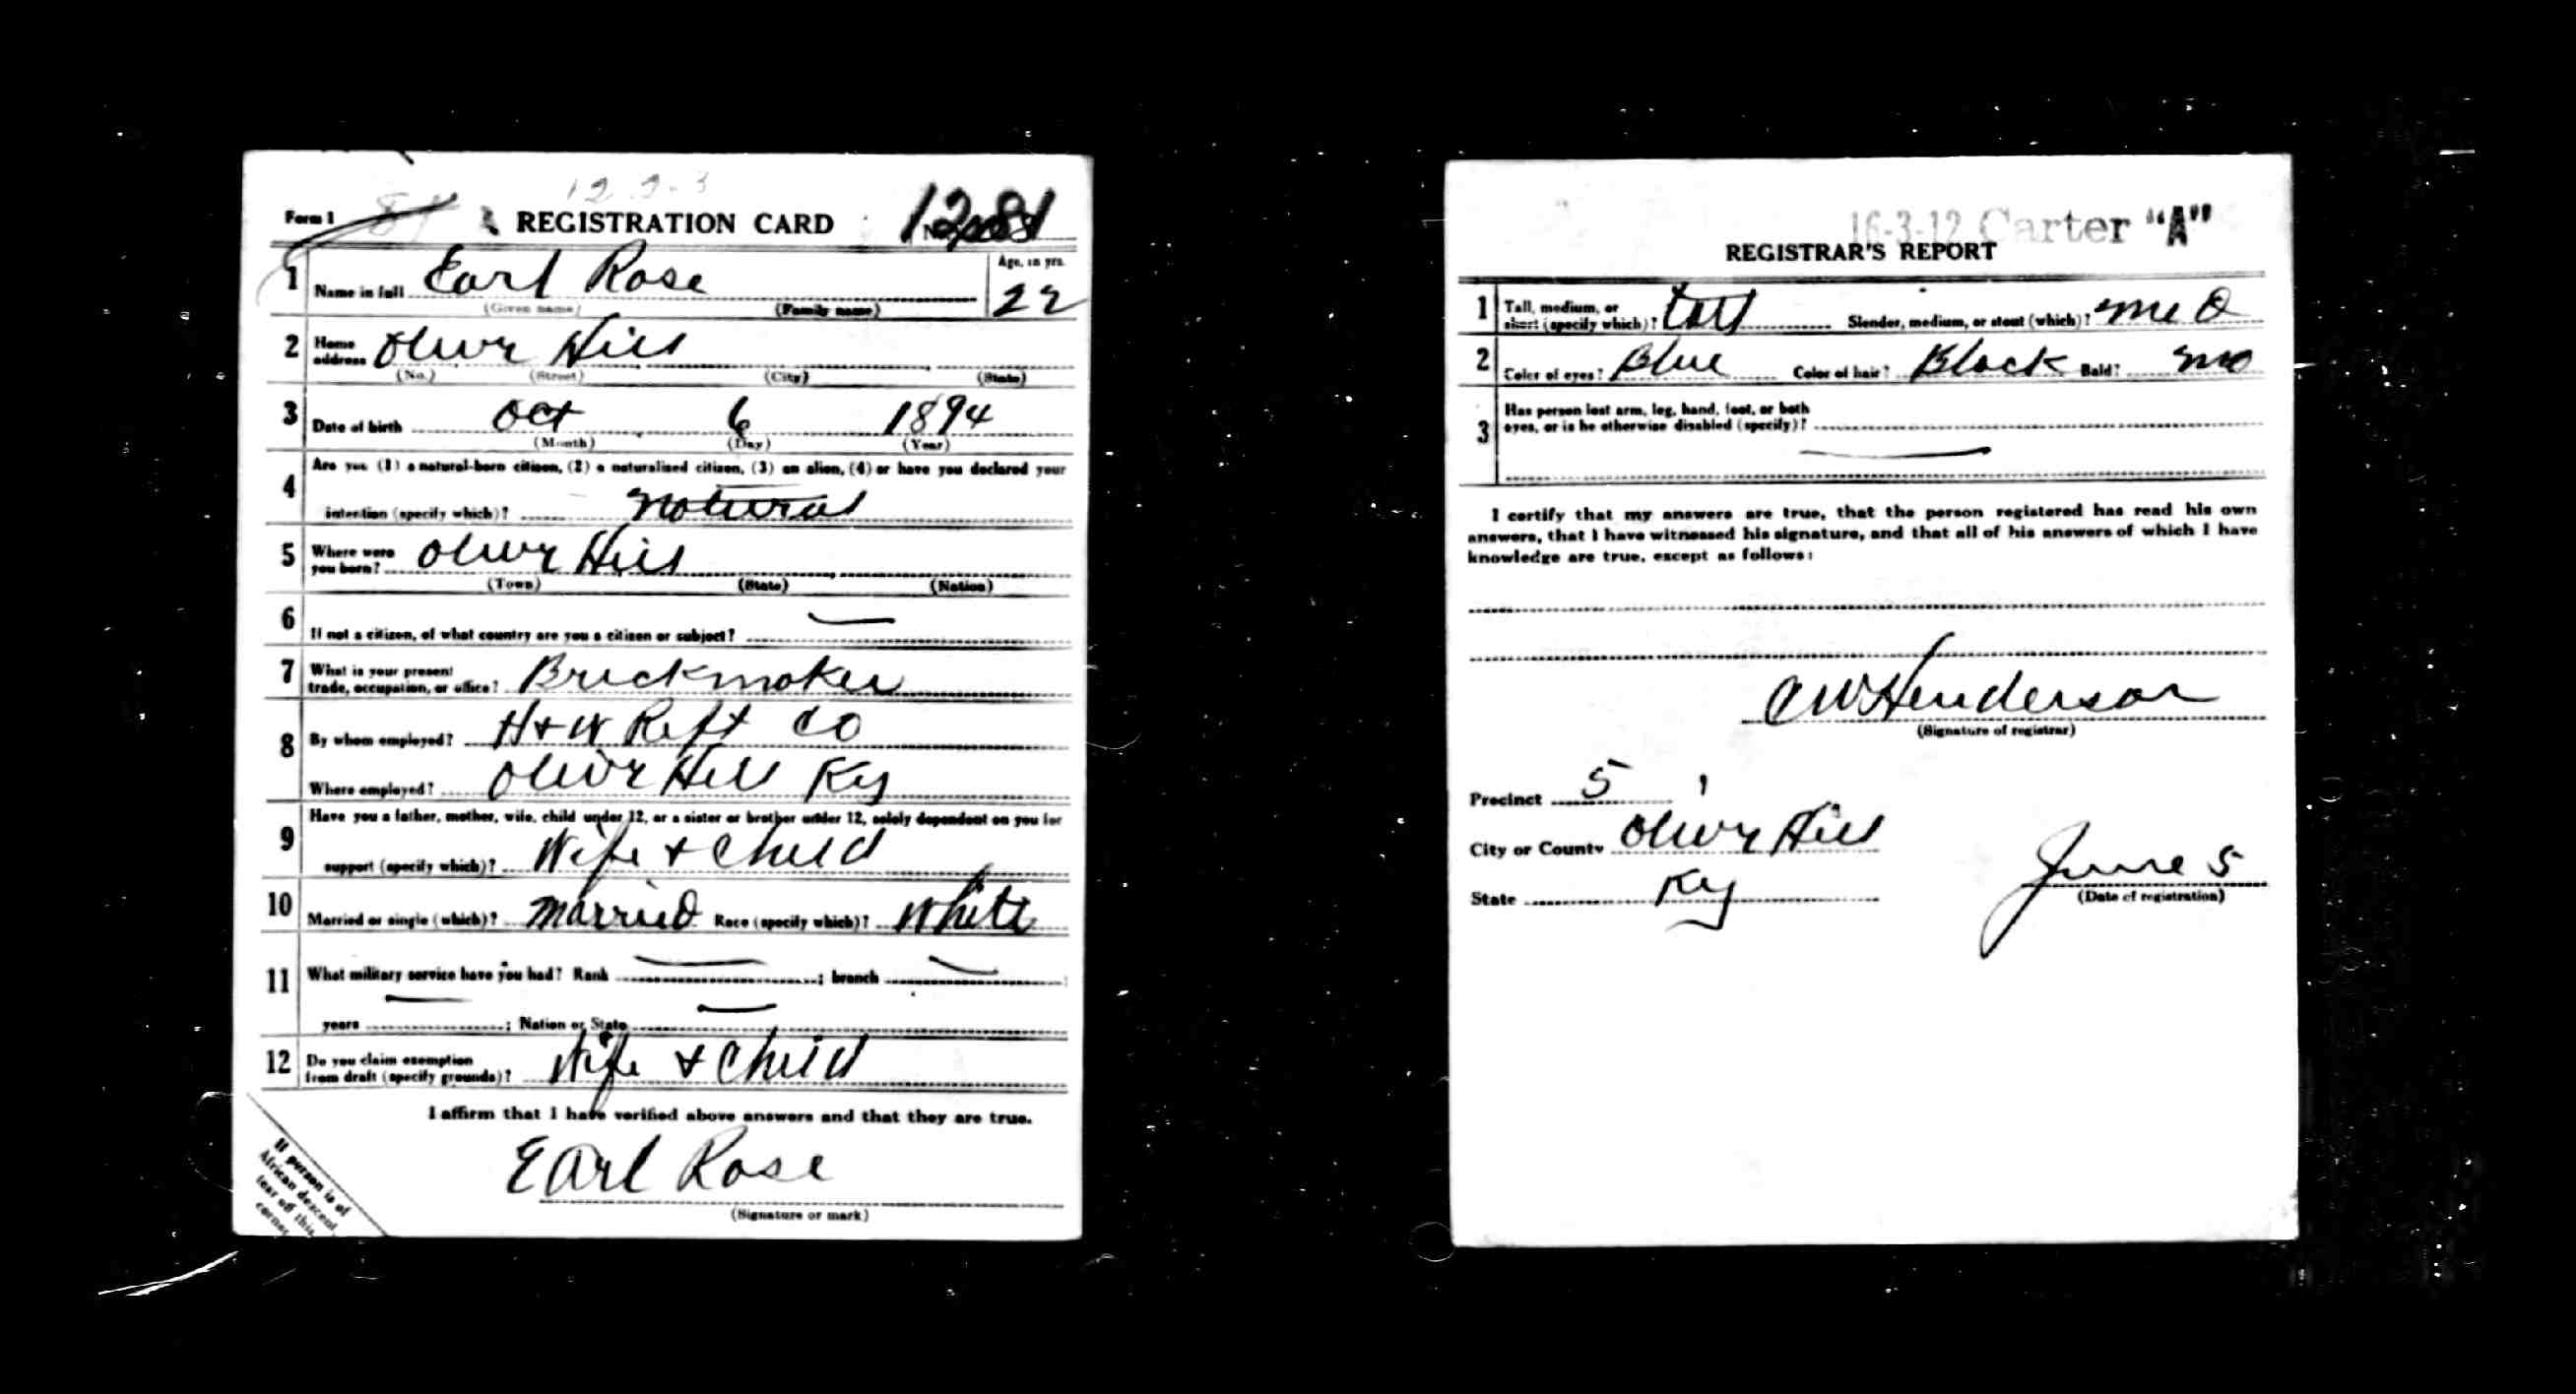 12 2-3
Form 1 REGISTRATION CARD
1 Name in full Earl Rose Age, in yrs. 22
(Given name) (Family name)
2 Home address Olive Hill
(No.) (Street) (City) (State)
3 Date of birth Oct 6 1894
(Month) (Day) (Year)
4 Are you (1) a natural-born citizen, (2) a naturalized citizen, (3) an alien, (4) or have you declared your
intention (specify which)? Natural
5 Where were you born? Olive Hill
(Town) (State) (Nation)
6 If not a citizen, of what country are you a citizen or subject? —
7 What is your present trade, occupation, or office? Brickmaker
8 By whom employed? H + W Co
Where employed? Olive Hill Ky
9 Have you a father, mother, wife, child under 12, or a sister or brother under 12, solely dependent on you for
support (specify which)? Wife + Child
10 Married or single (which)? Married Race (specify which)? White
11 What military service have you had? Rank — ; branch — ;
years — ; Nation or State —
12 Do you claim exemption from draft (specify grounds)? Wife + Child
I affirm that I have verified above answers and that they are true.
Earl Rose
(Signature or mark)
If person is of
African descent
tear off this
corner
16-3-12 Carter "A"
REGISTRAR'S REPORT
1 Tall, medium, or short (specify which)? tall Slender, medium, or stout (which)? Med
2 Color of eyes? Blue Color of hair? Black Bald? no
3 Has person lost arm, leg, hand, foot, or both
eyes, or is he otherwise disabled (specify)?
—
I certify that my answers are true, that the person registered has read his own
answers, that I have witnessed his signature, and that all of his answers of which I have
knowledge are true, except as follows:
C W Henderson
(Signature of registrar)
Precinct 5
City or County Olive Hill
State Ky
June 5
(Date of registration)